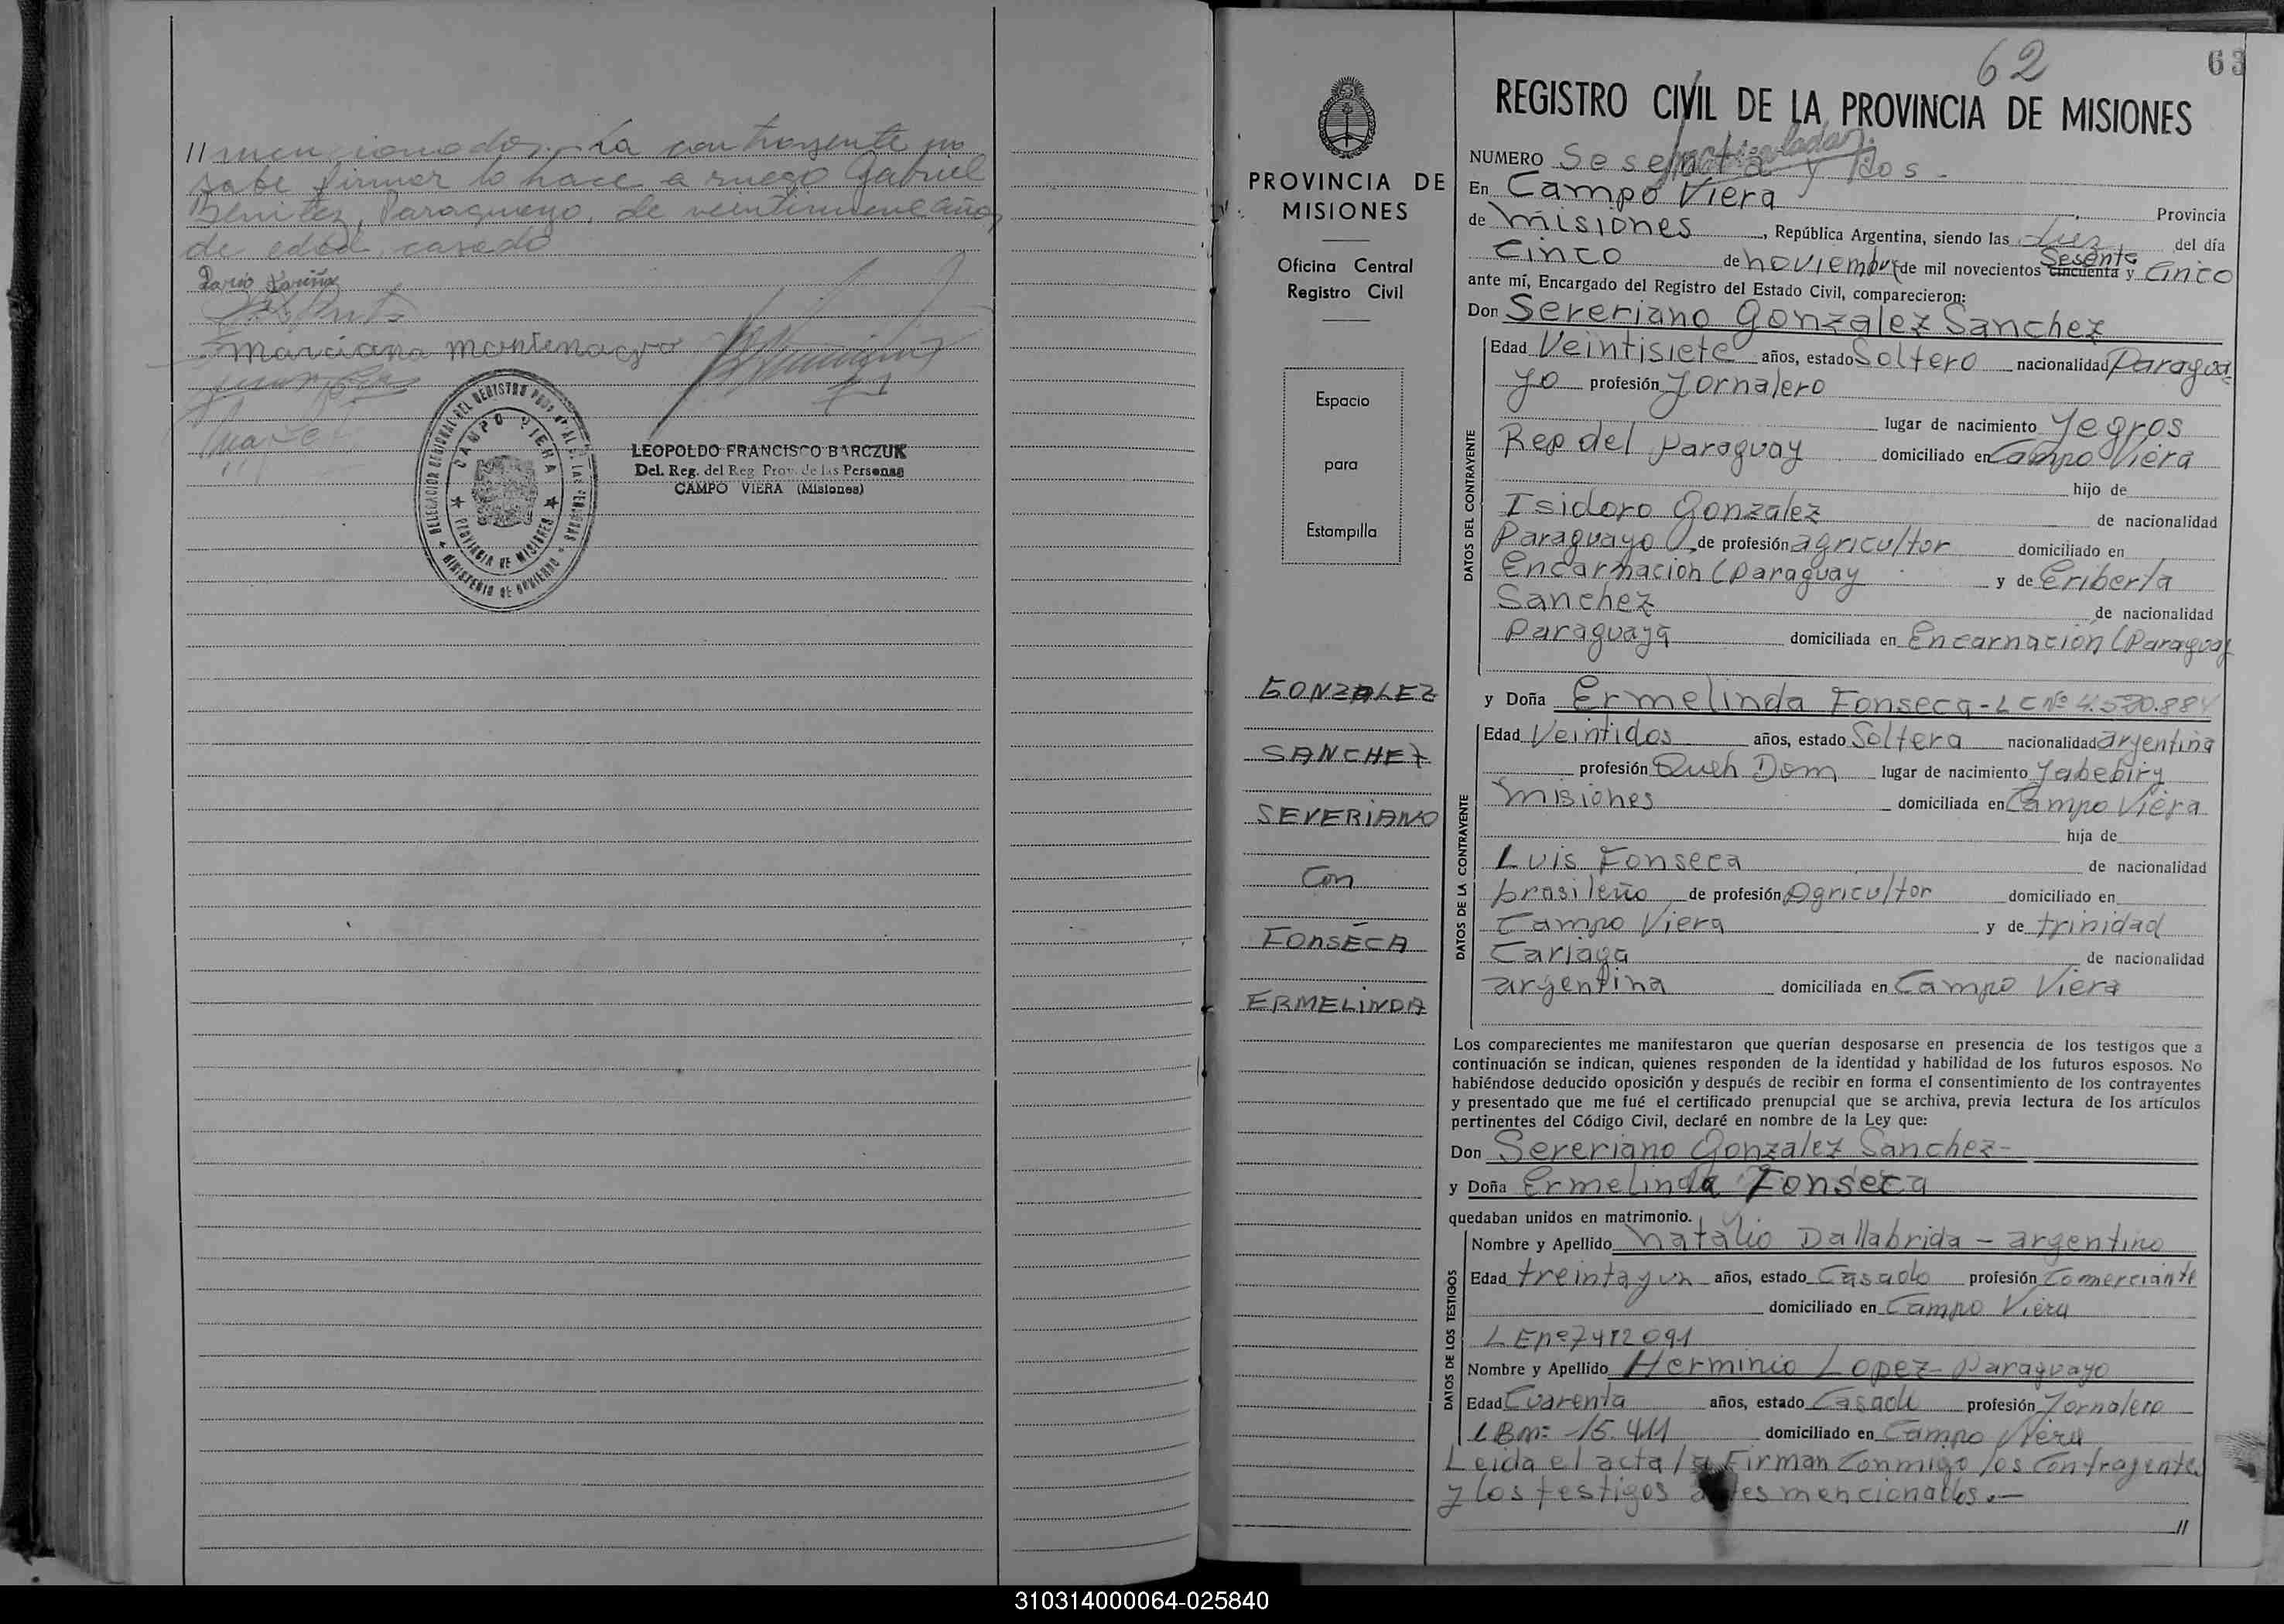 // mencionados.- La contrayente no
sabe firmar lo hace a ruego Gabriel
Benitez, Paraguayo, de veintinueve años
de edad, casado
Dario Fariña
Marciana Montenegro
DELEGACION REGIONAL DEL REGISTRO PROVINCIAL DE LAS PERSONAS
CAMPO VIERA
PROVINCIA DE MISIONES
MINISTERIO DE GOBIERNO
LEOPOLDO FRANCISCO BARCZUK
Del. Reg. del Reg. Prov. de las Personas
CAMPO VIERA (Misiones)
PROVINCIA DE
MISIONES
Oficina Central
Registro Civil
Espacio
para
Estampilla
GONZALEZ
SANCHEZ
SEVERIANO
Con
FONSECA
ERMELINDA
62
63
REGISTRO CIVIL DE LA PROVINCIA DE MISIONES
NUMERO Sesenta y Dos.-
En Campo Viera, Provincia
de Misiones, República Argentina, siendo las diez del día
Cinco de noviembre de mil novecientos cincuenta Sesenta y Cinco
ante mí, Encargado del Registro del Estado Civil, comparecieron:
Don Sereriano Gonzalez Sanchez
DATOS DEL CONTRAYENTE
Edad Veintisiete años, estado Soltero nacionalidad Paragua
yo profesión Jornalero
lugar de nacimiento Yegros
Rep del Paraguay domiciliado en Campo Viera
hijo de
Isidoro Gonzalez de nacionalidad
Paraguayo, de profesión agricultor domiciliado en
Encarnacion (Paraguay y de Eriberta
Sanchez de nacionalidad
Paraguaya domiciliada en Encarnación (Paraguay
y Doña Ermelinda Fonseca - LC Nº 4.520.884
DATOS DE LA CONTRAYENTE
Edad Veintidos años, estado Soltera nacionalidad argentina
profesión Queh Dom lugar de nacimiento Yabebiry
Misiones domiciliada en Campo Viera
hija de
Luis Fonseca de nacionalidad
brasileño de profesión Agricultor domiciliado en
Campo Viera y de trinidad
Cariaga de nacionalidad
argentina domiciliada en Campo Viera
Los comparecientes me manifestaron que querían desposarse en presencia de los testigos que a
continuación se indican, quienes responden de la identidad y habilidad de los futuros esposos. No
habiéndose deducido oposición y después de recibir en forma el consentimiento de los contrayentes
y presentado que me fué el certificado prenupcial que se archiva, previa lectura de los artículos
pertinentes del Código Civil, declaré en nombre de la Ley que:
Don Sereriano Gonzalez Sanchez-
y Doña Ermelinda Fonseca
quedaban unidos en matrimonio.
DATOS DE LOS TESTIGOS
Nombre y Apellido Natalio Dallabrida - argentino
Edad treinta y un años, estado Casado profesión Comerciante
domiciliado en Campo Viera
LE nº 7472091
Nombre y Apellido Herminio Lopez- Paraguayo
Edad Cuarenta años, estado Casado profesión Jornalero
15.411 domiciliado en Campo Viera
Leida el acta la Firman Conmigo los Contrayentes
y los testigos antes mencionados.-
//
310314000064-025840